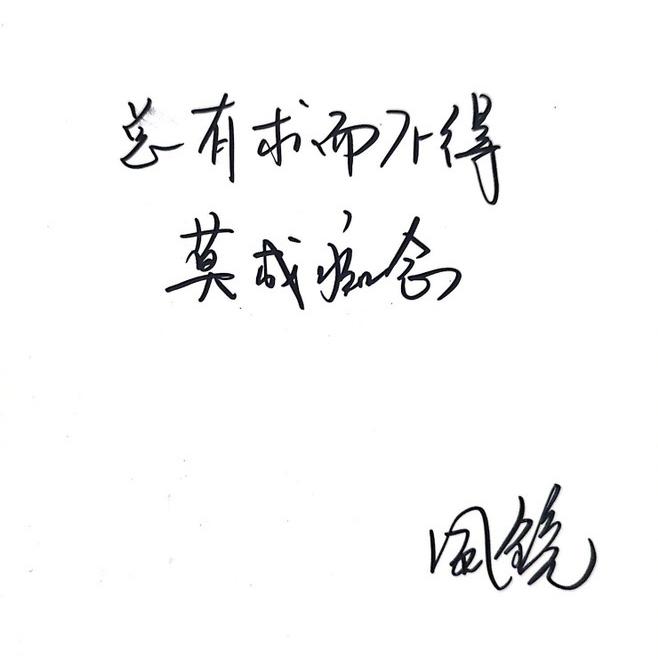 总有求而不得
莫成痴念